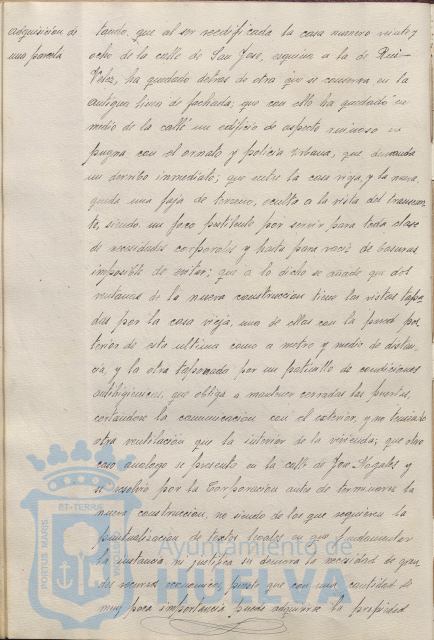 adquisición de
una parcela
tando, que al ser reedificada la casa número veinte y
ocho de la calle de San José, esquina a la de Rui-
Velez, ha quedado detras de otra que se conserva en la
antigua linea de fachada; que con ello ha quedado en
medio de la calle un edificio de aspecto ruinoso en
pugna con el ornato y policia urbana, que demanda
un derribo inmediato; que entre la casa vieja, y la nueva,
queda una faja de terreno, oculto a la vista del transeun-
te, siendo un foco pestilente por servir para toda clase
de necesidades corporales y hasta para vaciar de basuras
imposible de evitar; que a lo dicho se añade que dos
ventanas de la nueva construccion tiene las vistas tapa-
das por la casa vieja, una de ellas con la pared pos-
terior de esta ultima como a metro y medio de distan-
cia, y la otra taponada por un patinillo de condiciones
antihigienicas, que obliga a mantener cerradas las puertas,
cortandose la comunicacion con el exterior, y no teniendo
otra ventilacion que la interior de la vivienda; que otro
caso analogo se presentó en la calle de José Nogales y
se resolvió por la Corporacion antes de terminarse la
nueva construccion, no siendo de los que requieren la
puntualizacion de textos legales en que fundamentar
la instancia ni justifica su demora la necesidad de gran-
des recursos economicos, puesto que con una cantidad de
muy poca importancia puede adquirirse la propiedad
PORTUS MARIS
ET TERRAE
Ayuntamiento de
HUELVA